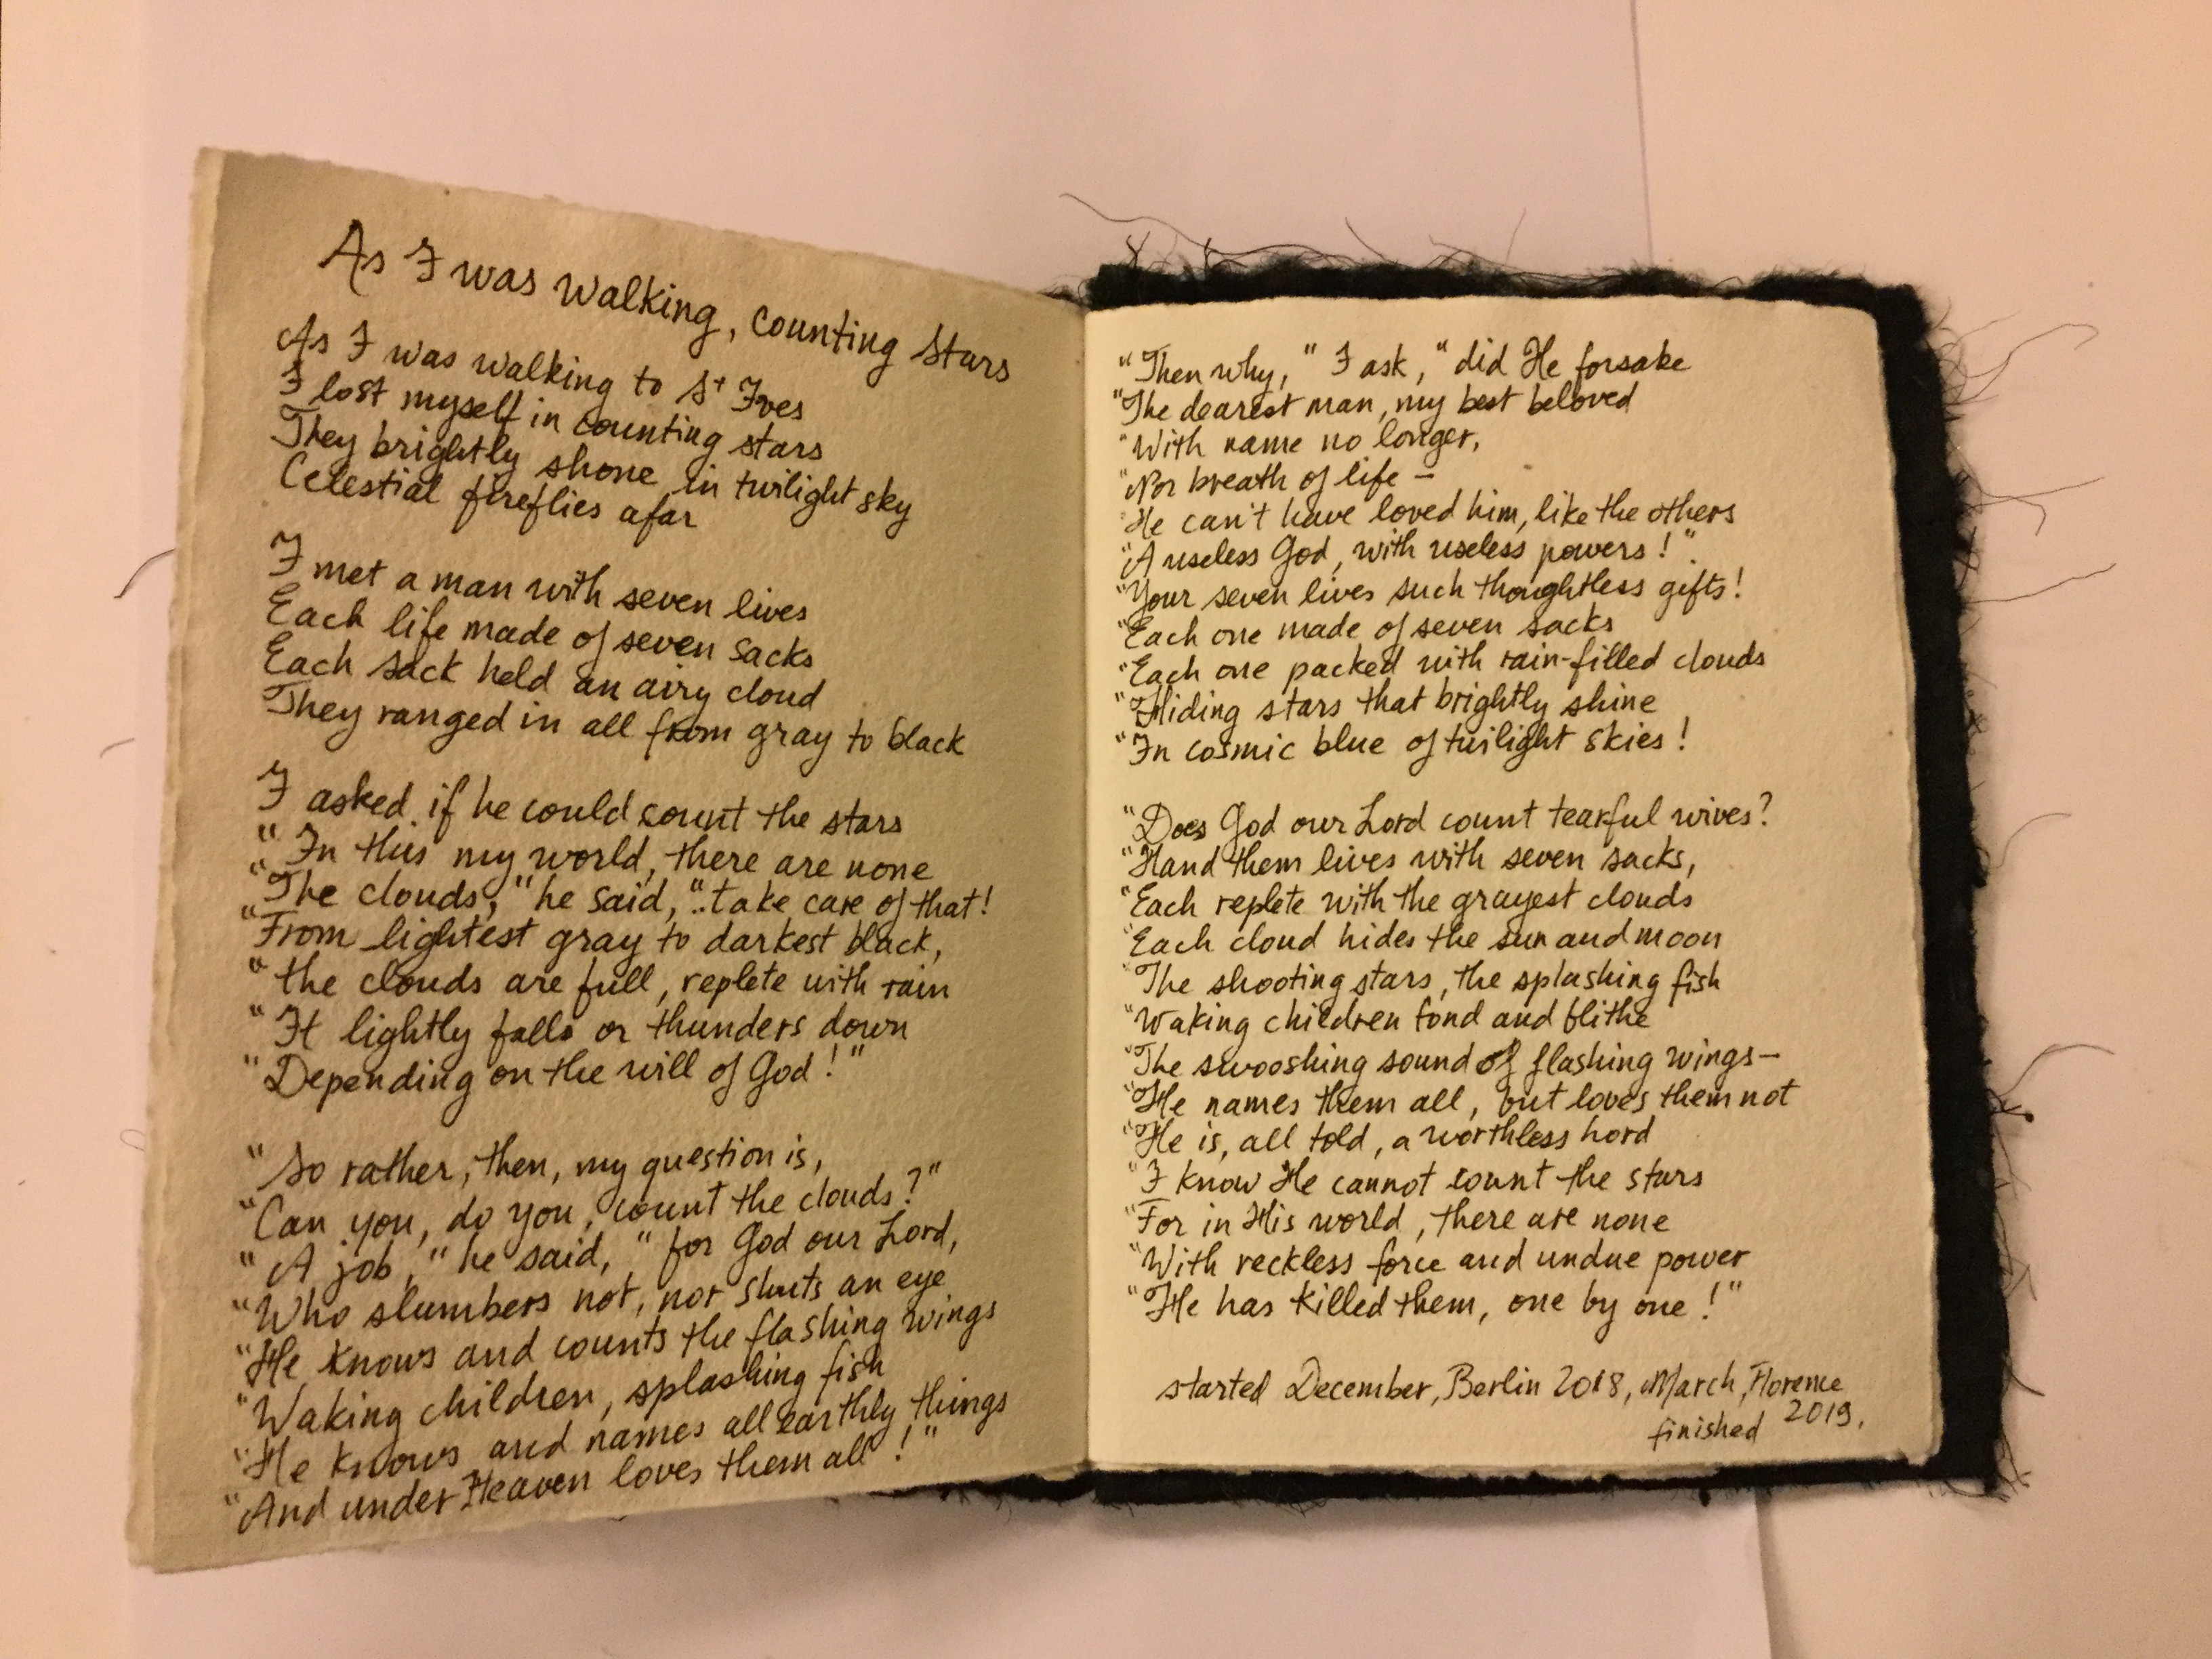 As I was walking, counting stars
As I was walking to St Ives
I lost myself in counting stars
They brightly shone in twilight sky
Celestial fireflies afar
I met a man with seven lives
Each life made of seven sacks
Each sack held an airy cloud
They ranged in all from gray to black
I asked if he could count the stars
"In this my world, there are none
"The clouds," he said, "take care of that!
"From lightest gray to darkest black,
"the clouds are full, replete with rain
"It lightly falls or thunders down
"Depending on the will of God!"
"So rather, then, my question is,
"Can you, do you, count the clouds?"
"A job," he said, "for God our Lord,
"Who slumbers not, nor shuts an eye
"He knows and counts the flashing wings
"Waking children, splashing fish
"He knows and names all earthly things
"And under Heaven loves them all!"
"Then why," I ask, "did He forsake
"The dearest man, my best beloved
"With name no longer,
"Nor breath of life –
"He can't have loved him, like the others
"A useless God, with useless powers!"
"Your seven lives such thoughtless gifts!
"Each one made of seven sacks
"Each one packed with rain-filled clouds
"Hiding stars that brightly shine
"In cosmic blue of twilight skies!
"Does God our Lord count tearful wives?
"Hand them lives with seven sacks,
"Each replete with the grayest clouds
"Each cloud hides the sun and moon
"The shooting stars, the splashing fish
"Waking children fond and blithe
"The swooshing sound of flashing wings–
"He names them all, but loves them not
"He is, all told, a worthless Lord
"I know He cannot count the stars
"For in His world, there are none
"With reckless force and undue power
"He has killed them, one by one!"
started December, Berlin 2018, March, Florence
finished 2019.